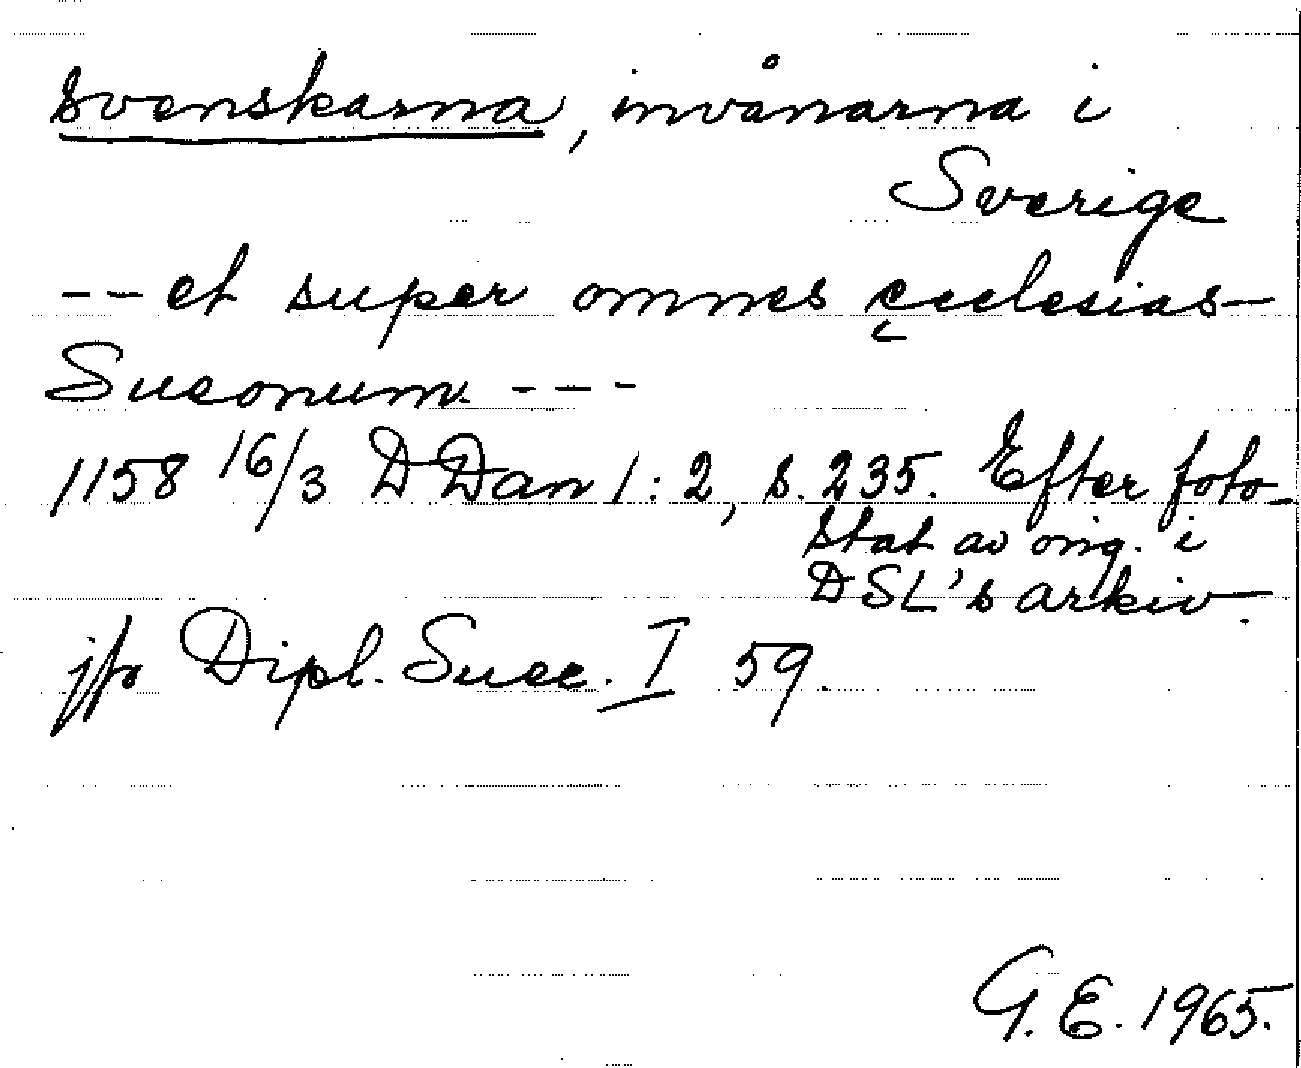 svenskarna, invånarna i
Sverige
-- et super omnes ęcclesias
Sueonum. ---
1158 16/3 DDan 1:2, s. 235. Efter foto-
stat av orig. i
DSL's arkiv.
jfr Dipl. Suec. I 59.
G. E. 1965.